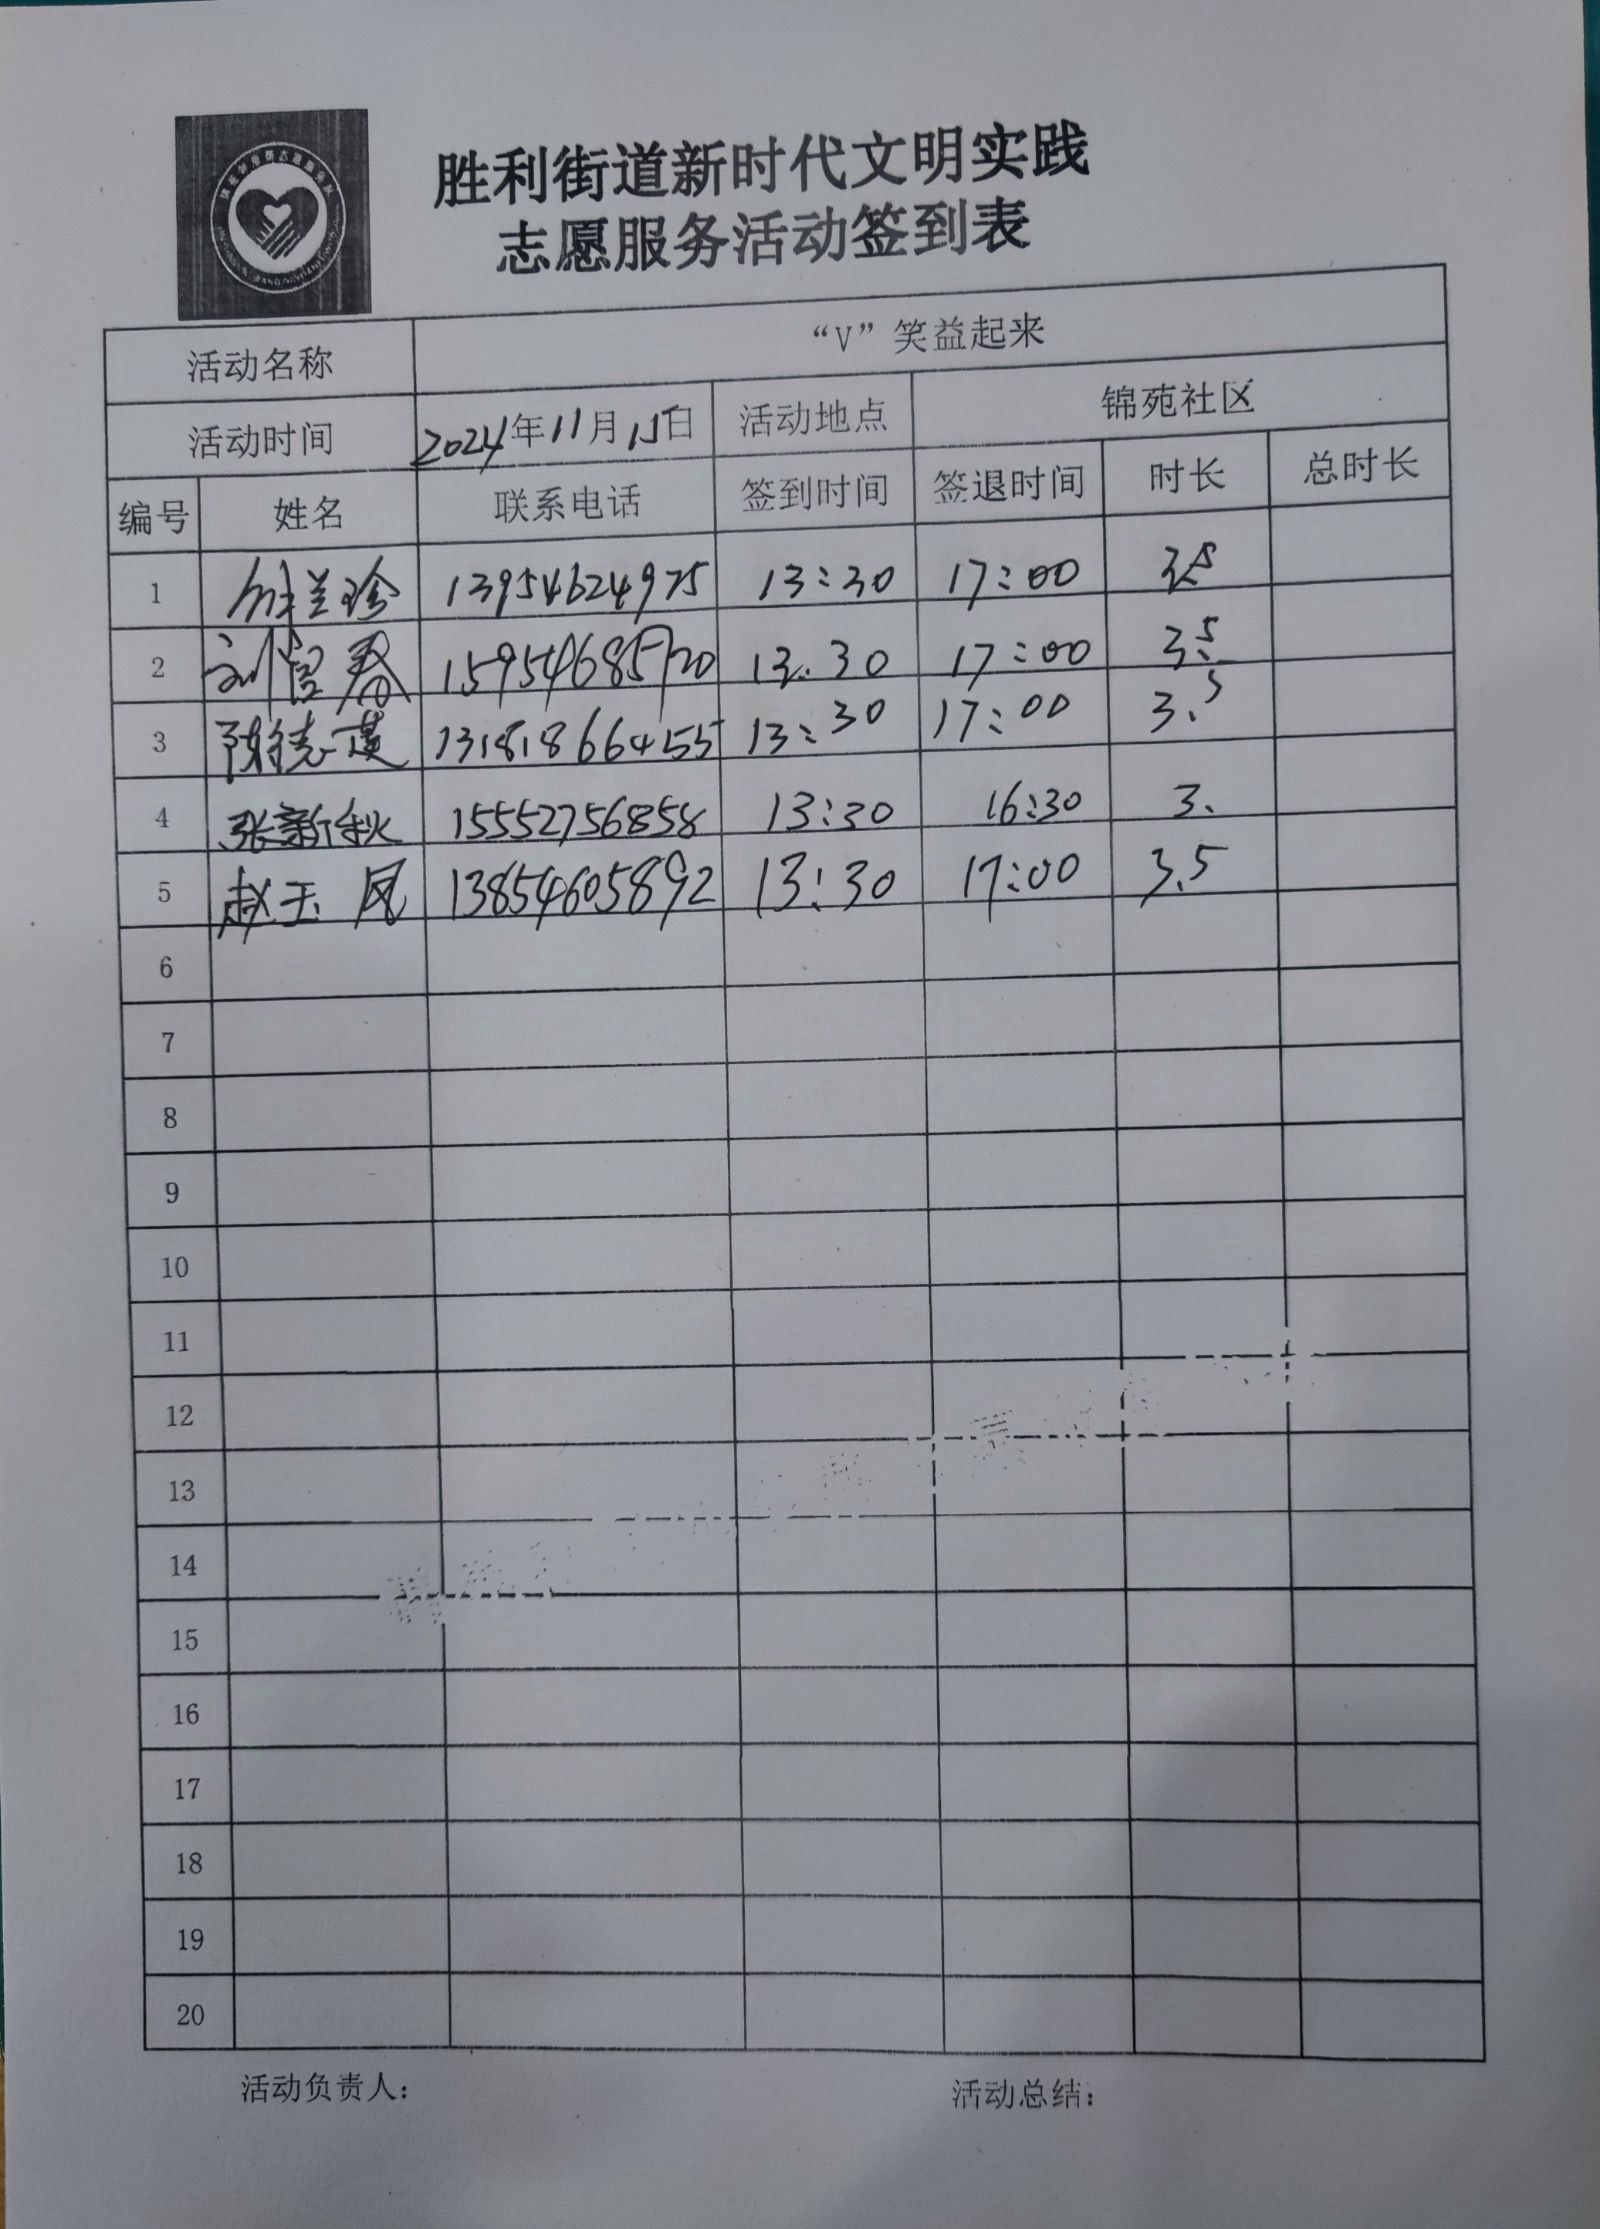 胜利街道新时代文明实践
志愿服务活动签到表
活动名称 “V”笑益起来
活动时间 2024年11月15日 活动地点 锦苑社区
编号 姓名 联系电话 签到时间 签退时间 时长 总时长
1 兰珍 13954624975 13:30 17:00 3.5
2 刘 春 15954685720 13:30 17:00 3.5
3 陈德英 13181866455 13:30 17:00 3.5
4 张新秋 15552756858 13:30 16:30 3.
5 赵玉凤 13854605892 13:30 17:00 3.5
6
7
8
9
10
11
12
13
14
15
16
17
18
19
20
活动负责人: 活动总结: